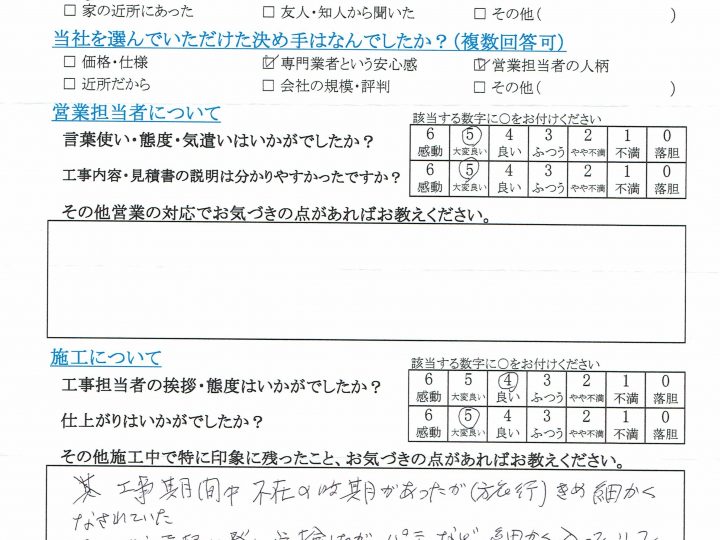 □ 家の近所にあった □ 友人・知人から聞いた □ その他( )
当社を選んでいただけた決め手はなんでしたか？(複数回答可)
□ 価格・仕様 ☑ 専門業者という安心感 ☑ 営業担当者の人柄
□ 近所だから □ 会社の規模・評判 □ その他( )
営業担当者について
該当する数字に○をお付けください
言葉使い・態度・気遣いはいかがでしたか？
6 5 4 3 2 1 0
感動 大変良い 良い ふつう やや不満 不満 落胆
工事内容・見積書の説明は分かりやすかったですか？
6 5 4 3 2 1 0
感動 大変良い 良い ふつう やや不満 不満 落胆
その他営業の対応でお気づきの点があればお教えください。
施工について
該当する数字に○をお付けください
工事担当者の挨拶・態度はいかがでしたか？
6 5 4 3 2 1 0
感動 大変良い 良い ふつう やや不満 不満 落胆
仕上がりはいかがでしたか？
6 5 4 3 2 1 0
感動 大変良い 良い ふつう やや不満 不満 落胆
その他施工中で特に印象に残ったこと、お気づきの点があればお教えください。
工事期間中 不在の時期があったが(旅行)きめ細かく
なされていた